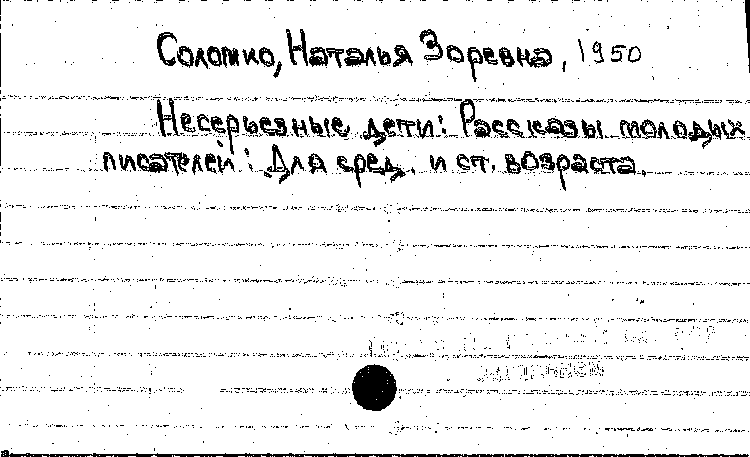 Соломко, Наталья Зоревна, 1950
Несерьезные дети: Рассказы молодых
писателей: Для сред. и ст. возраста.